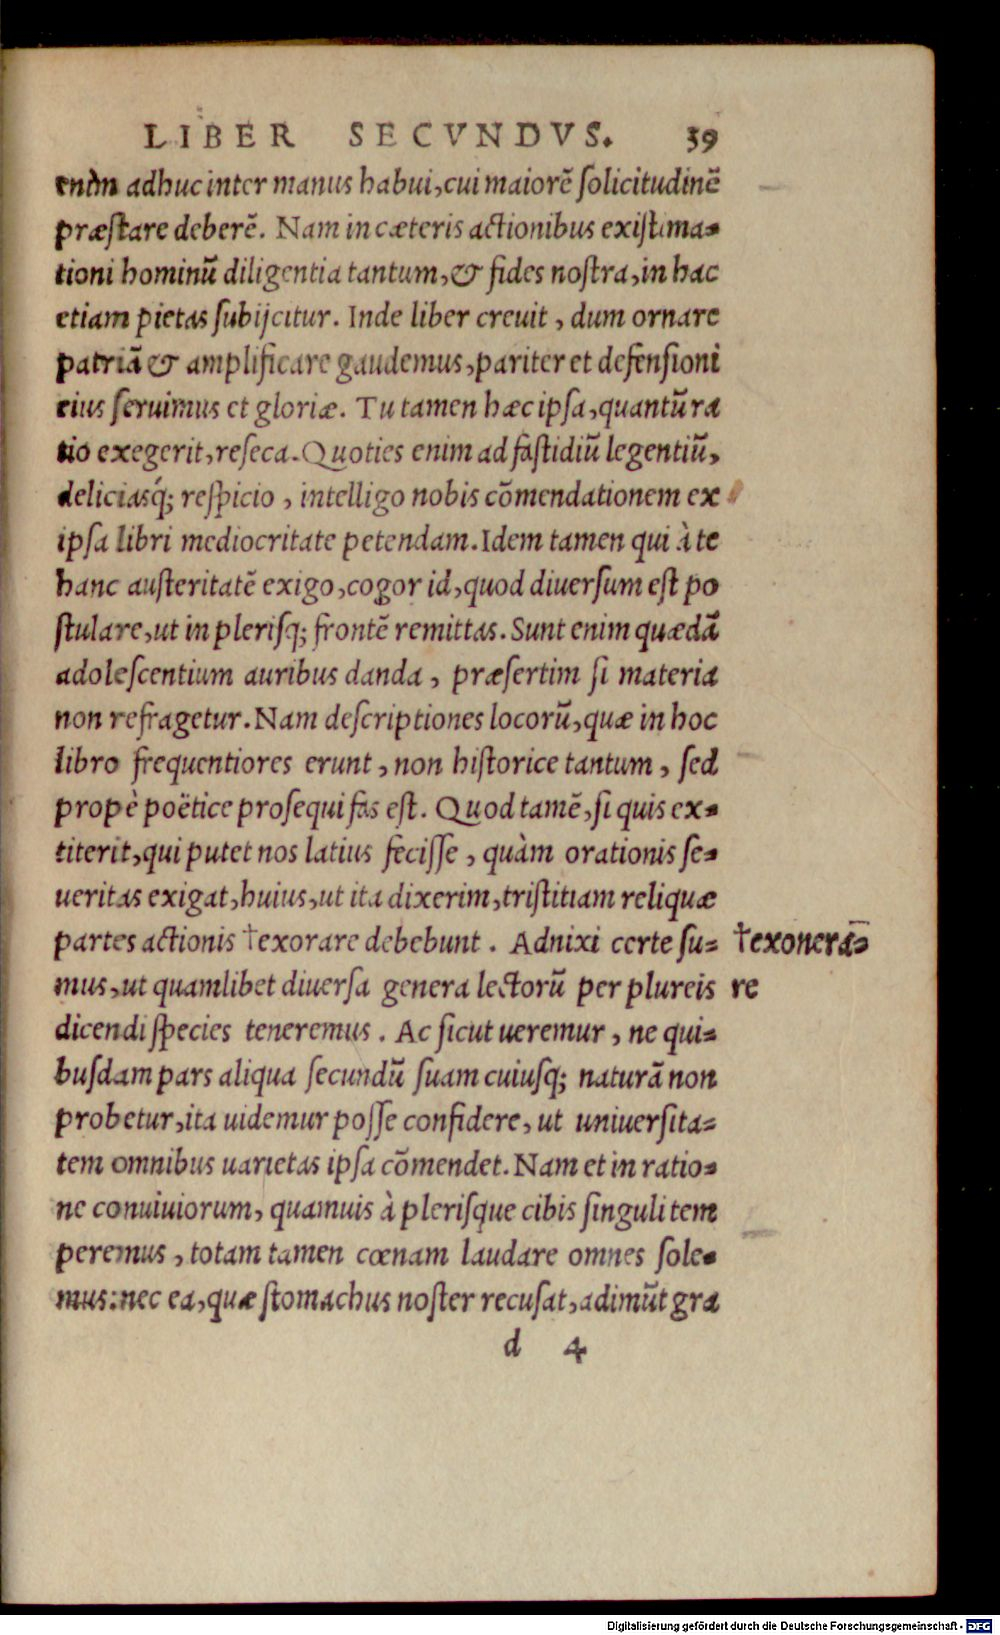 LIBER SECVNDVS. 39
adhuc inter manus habui, cui maiorẽ ſolicitudinẽ
præſtare deberẽ. Nam in cæteris actionibus exiſtima-
tioni hominũ diligentia tantum, & fides noſtra, in hac
etiam pietas ſubijcitur. Inde liber creuit, dum ornare
patriã & amplificare gaudemus, pariter et defenſioni
eius ſeruimus et gloriæ. Tu tamen hæc ipſa, quantũ ra
tio exegerit, reſeca. Quoties enim ad faſtidiũ legentiũ,
deliciasq́; reſpicio, intelligo nobis cõmendationem ex
ipſa libri mediocritate petendam. Idem tamen qui à te
hanc auſteritatẽ exigo, cogor id, quod diuerſum eſt po
ſtulare, ut in pleriſq; frontẽ remittas. Sunt enim quædã
adoleſcentium auribus danda, præſertim ſi materia
non refragetur. Nam deſcriptiones locorũ, quæ in hoc
libro frequentiores erunt, non hiſtorice tantum, ſed
propè poëtice proſequi fas eſt. Quod tamẽ, ſi quis ex-
titerit, qui putet nos latius feciſſe, quàm orationis ſe-
ueritas exigat, huius, ut ita dixerim, triſtitiam reliquæ
partes actionis †exorare debebunt. Adnixi certe ſu- †exonerã-
mus, ut quamlibet diuerſa genera lectorũ per plureis re
dicendi ſpecies teneremus. Ac ſicut ueremur, ne qui-
buſdam pars aliqua ſecundũ ſuam cuiuſq; naturã non
probetur, ita uidemur poſſe confidere, ut uniuerſita-
tem omnibus uarietas ipſa cõmendet. Nam et in ratio-
ne conuiuiorum, quamuis à pleriſque cibis ſinguli tem
peremus, totam tamen cœnam laudare omnes ſole-
mus: nec ea, quæ ſtomachus noſter recuſat, adimũt gra
d 4
Digitalisierung gefördert durch die Deutsche Forschungsgemeinschaft - DFG